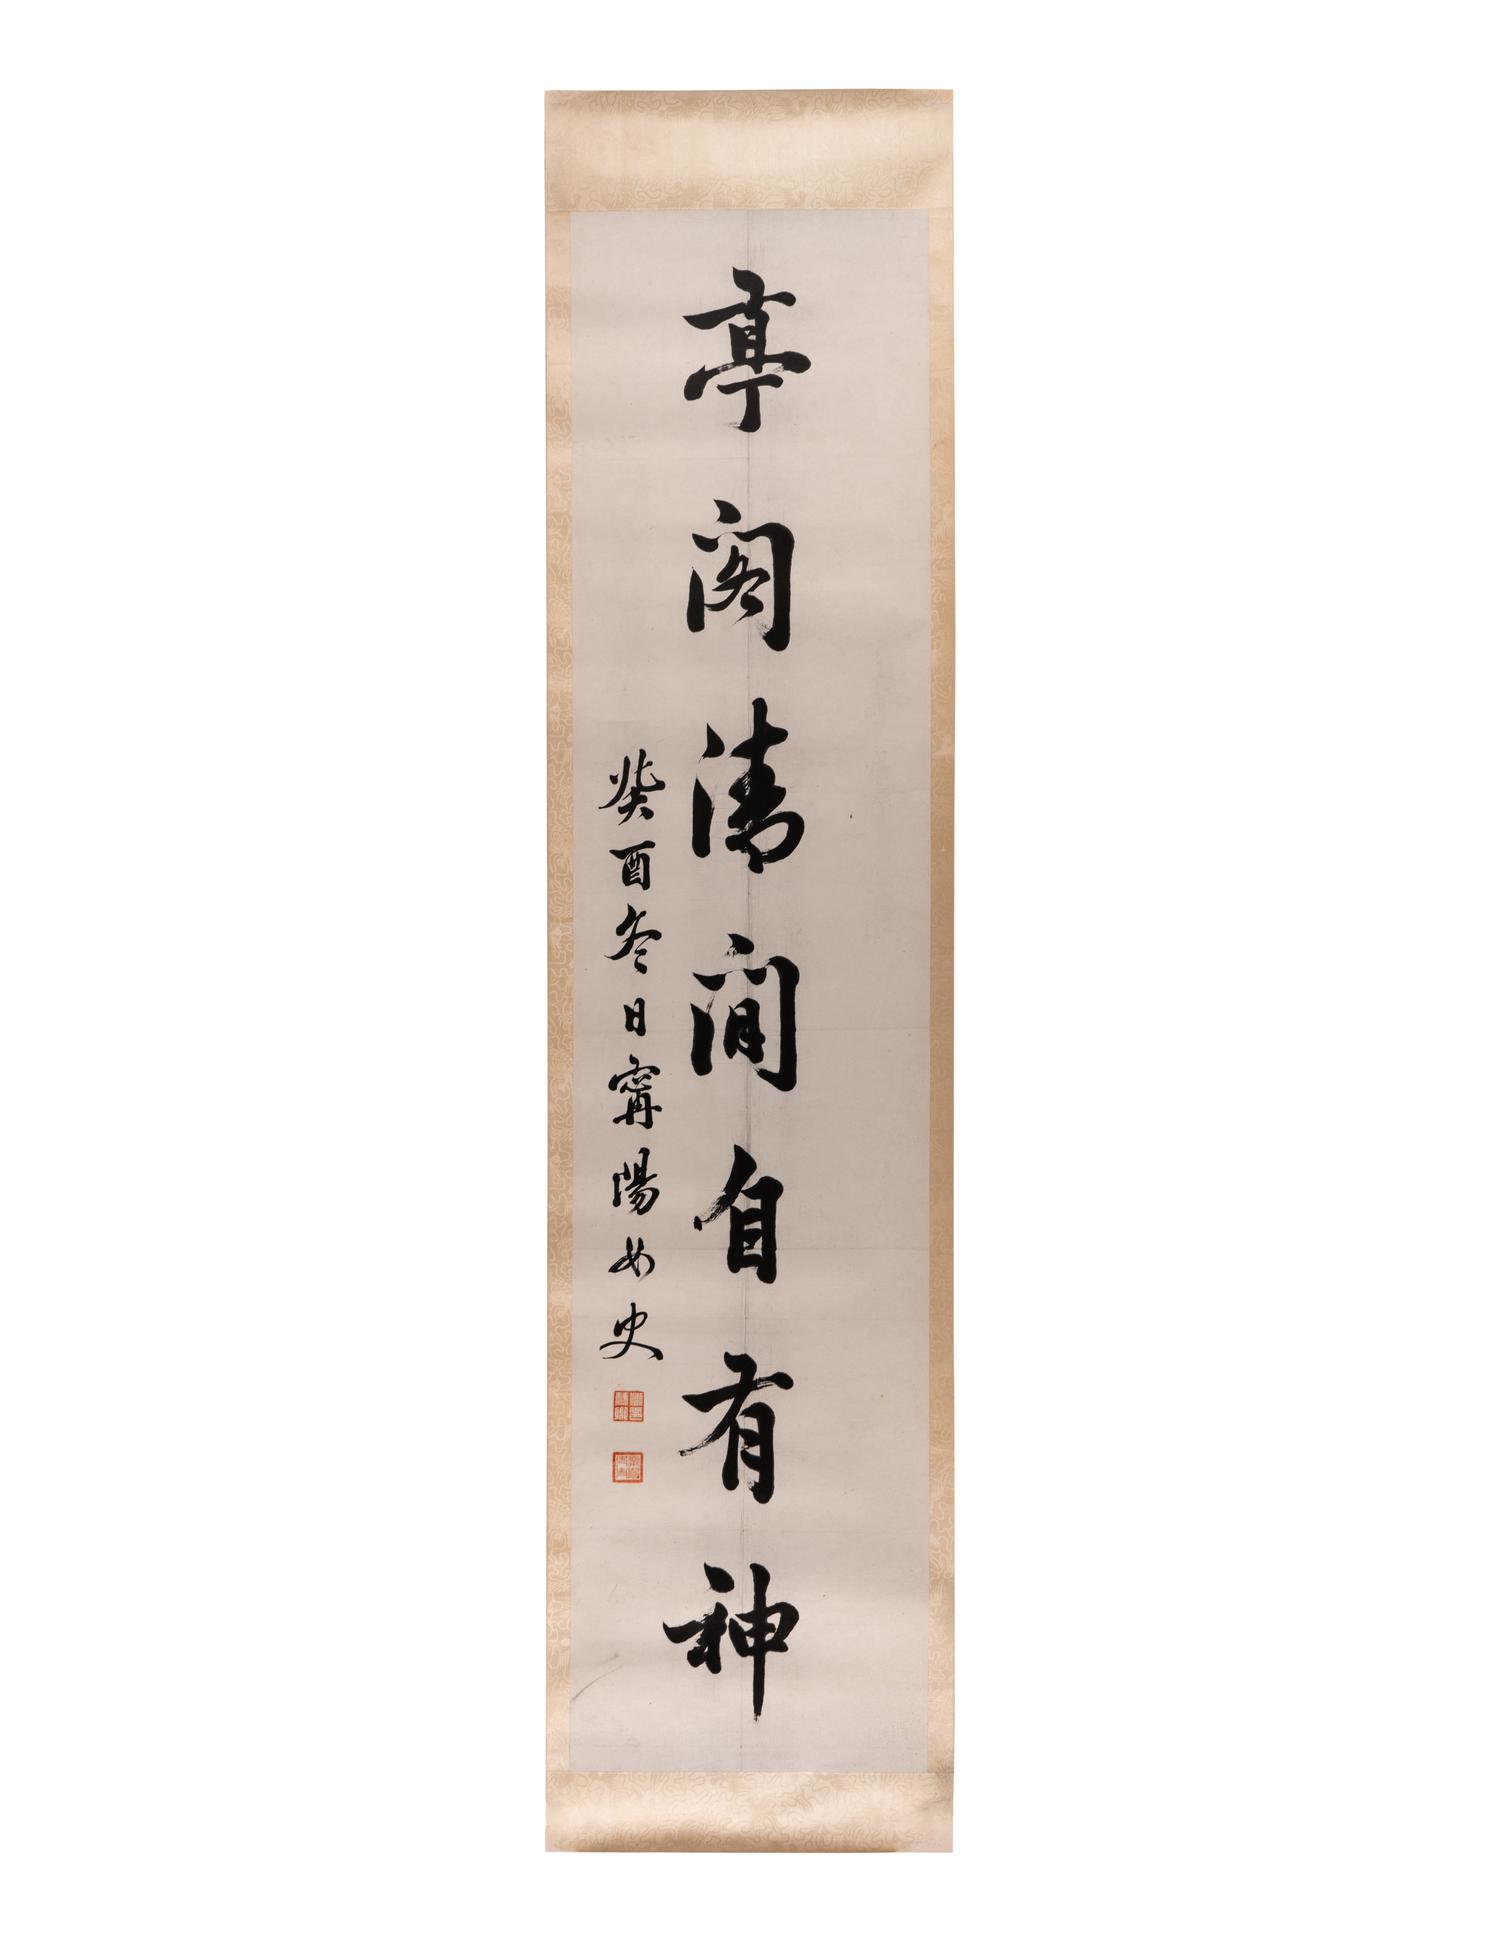 亭閣清閒自有神
癸酉冬日寗陽女史